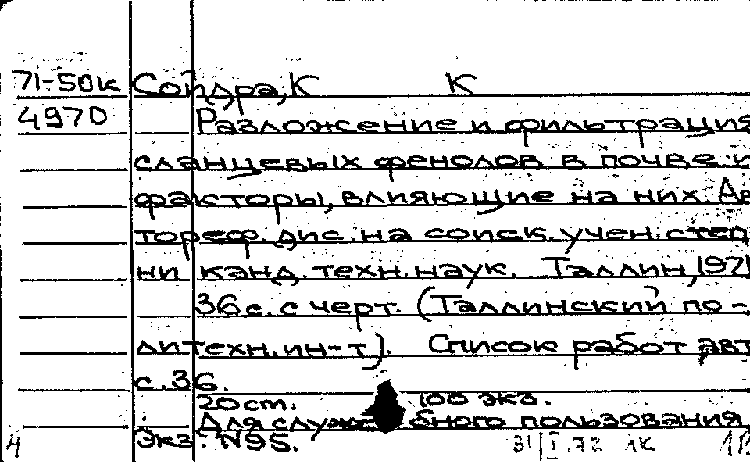 71-50к Сойдра, К К
4970 Разложение и фильтрация
сланцевых фенолов в почве и
факторы, влияющие на них. Ав
тореф. дис. на соиск. учен. степ
ни канд. техн. наук. Таллин, 1971
36 с. с черт. (Таллинский по-
литехн. ин-т). Список работ авт
с. 36.
20 ст. 100 экз.
Для служебного пользования
Экз. №95.
4 31/I.72 1К